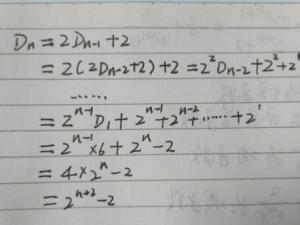 Dn = 2Dn-1 + 2
= 2(2Dn-2+2)+2 = 2²Dn-2 + 2² + 2¹
……
= 2ⁿ⁻¹D1 + 2ⁿ⁻¹ + 2ⁿ⁻² + …… + 2¹
= 2ⁿ⁻¹×6 + 2ⁿ - 2
= 4×2ⁿ - 2
= 2ⁿ⁺² - 2